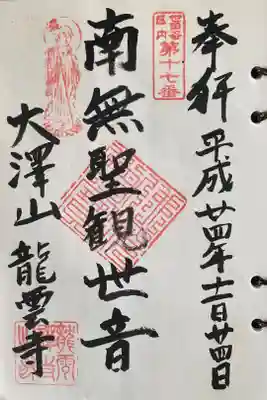 奉拝 平成廿四年十二月廿四日
第十七番
南無聖観世音
大澤山 龍雲寺